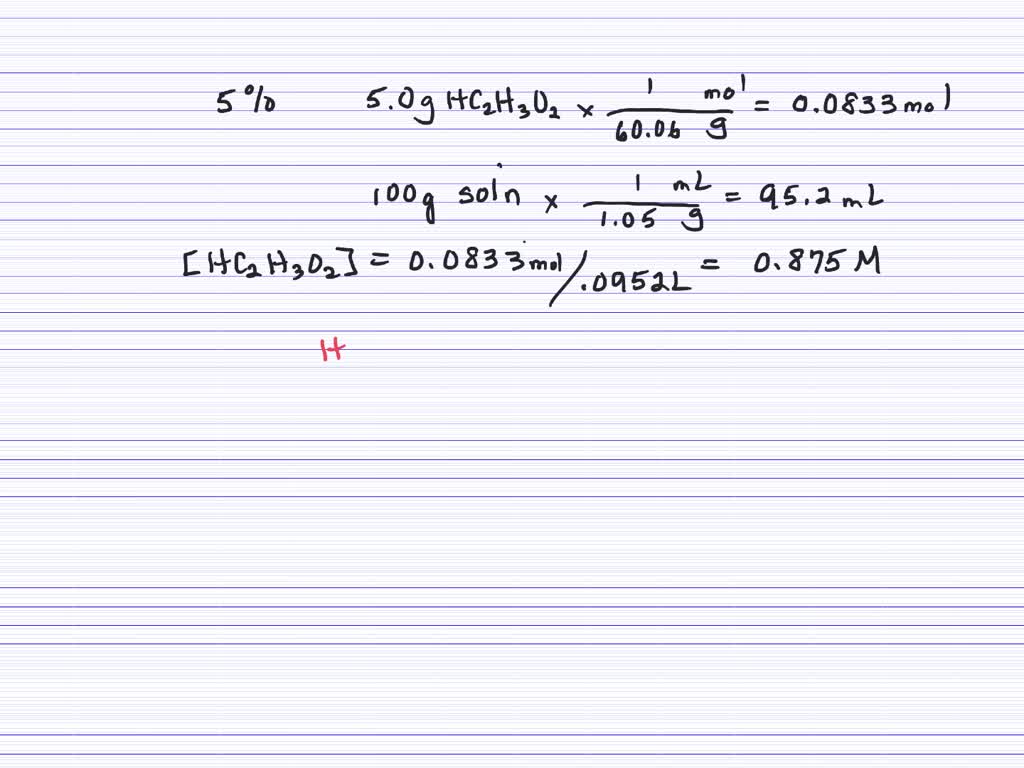 5% 5.0g HC₂H₃O₂ × 1 mol / 60.06 g = 0.0833 mol
100g soln × 1 mL / 1.05 g = 95.2 mL
[HC₂H₃O₂] = 0.0833 mol / .0952L = 0.875 M
H